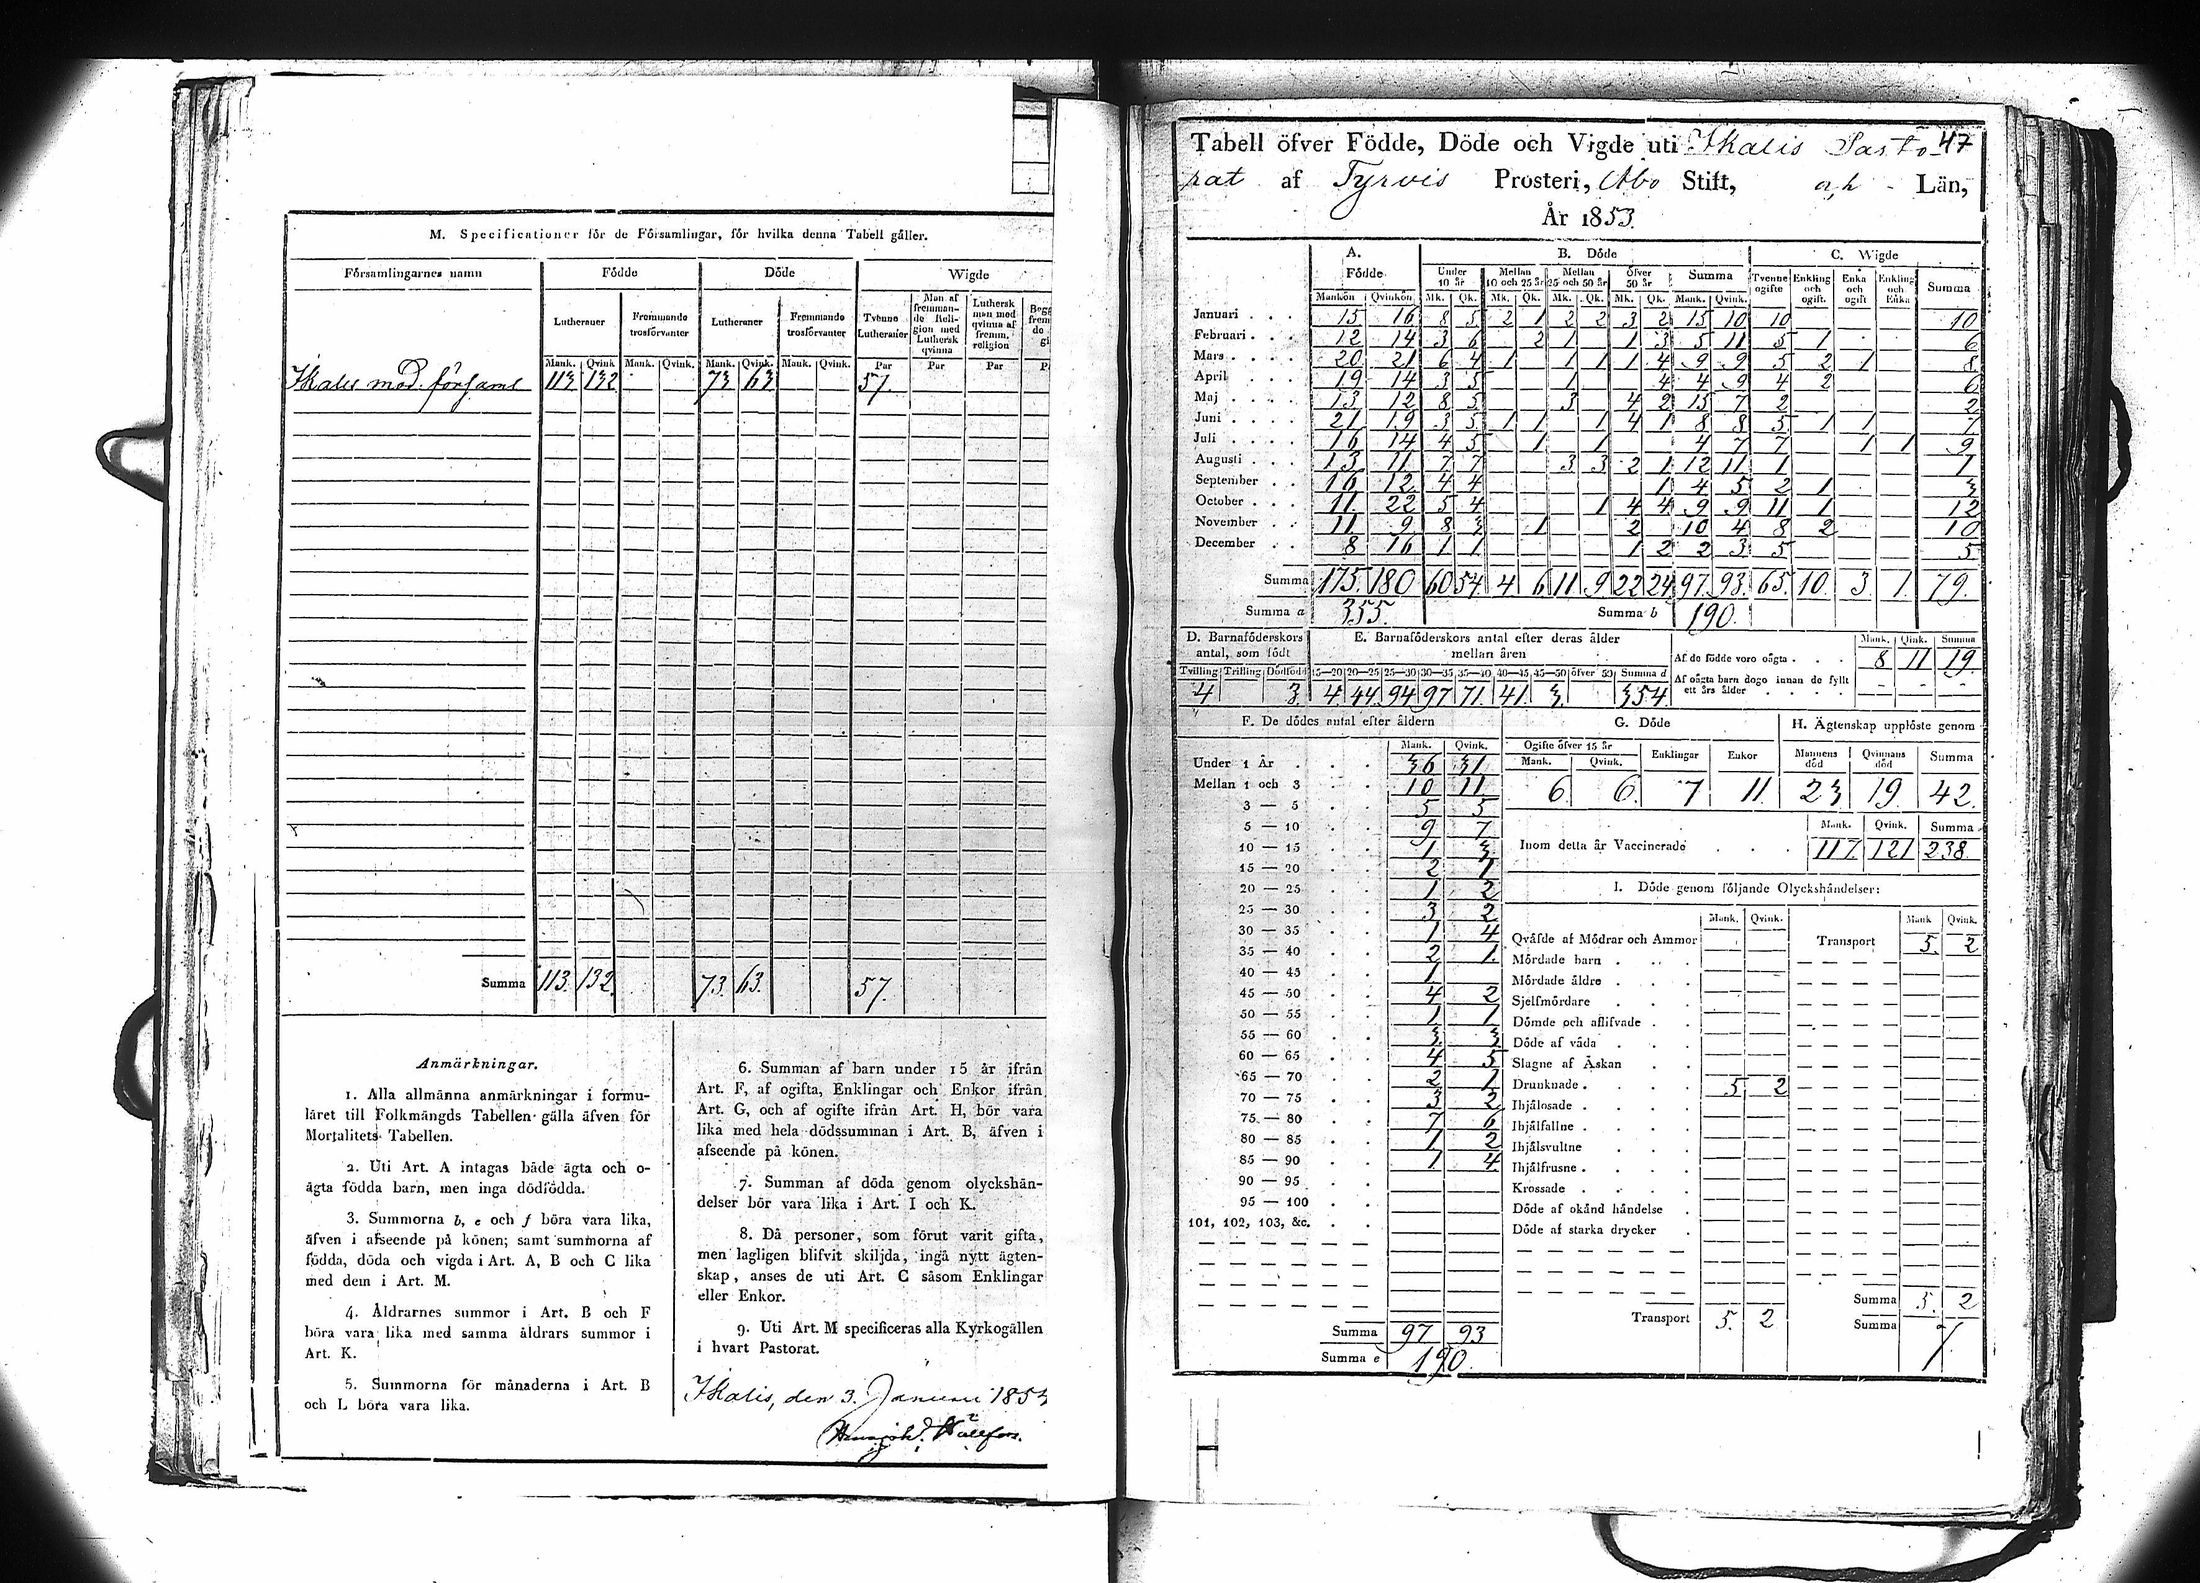 M. Specificationer för de Församlingar, för hvilka denna Tabell gäller.
Församlingarnes namn Födde Döde Wigde
Lutheraner Fremmande trosförvanter Lutheraner Fremmande trosförvanter Tvenne Lutheraner Man af fremmande Religion med Luthersk qvinna Luthersk man med qvinna af fremm. religion
Mank. Qvink Mank. Qvink. Mank. Qvink. Mank. Qvink. Par Par Par
Ikalis mod. församl 113 132 73 63 57.
Summa 113. 132. 73. 63. 57.
Anmärkningar.
1. Alla allmänna anmärkningar i formu-
läret till Folkmängds Tabellen gälla äfven för
Mortalitets Tabellen.
2. Uti Art. A intagas både ägta och o-
ägta födda barn, men inga dödfödda.
3. Summorna b, e och f böra vara lika,
äfven i afseende på könen; samt summorna af
födda, döda och vigda i Art. A, B och C lika
med dem i Art. M.
4. Åldrarnes summor i Art. B och F
böra vara lika med samma åldrars summor i
Art. K.
5. Summorna för månaderna i Art. B
och L böra vara lika.
6. Summan af barn under 15 år ifrån
Art. F, af ogifta, Enklingar och Enkor ifrån
Art. G, och af ogifte ifrån Art. H, bör vara
lika med hela dödssumman i Art. B, äfven i
afseende på könen.
7. Summan af döda genom olyckshän-
delser bör vara lika i Art. I och K.
8. Då personer, som förut varit gifta,
men lagligen blifvit skiljda, ingå nytt ägten-
skap, anses de uti Art. C såsom Enklingar
eller Enkor.
9. Uti Art. M specificeras alla Kyrkogällen
i hvart Pastorat.
Ikalis, den 3. Januari 185
Tabell öfver Födde, Döde och Vigde uti Ikalis Pasto- 47
rat af Tyrvis Prosteri, Åbo Stift, och - Län,
År 1853.
A. Födde B. Döde C. Wigde
Under 10 år Mellan 10 och 25 år Mellan 25 och 50 år Öfver 50 år Summa Tvenne ogifte Enkling och ogift. Enka och ogift Enkling och Enka Summa
Mankön Qvinkön Mk. Qk. Mk. Qk. Mk. Qk. Mk. Qk. Mank. Qvink.
Januari 15 16 8 5 2 1 2 2 3 2 15 10 10 10
Februari 12 14 3 6 2 1 1 3 5 11 5 1 6
Mars 20 21 6 4 1 1 1 1 4 9 9 5 2 1 8
April 19 14 3 5 1 4 4 9 4 2 6
Maj 13 12 8 5 3 4 2 15 7 2 2
Juni 21 19 3 5 1 1 1 4 1 8 8 5 1 1 7
Juli 16 14 4 5 1 1 4 7 7 1 1 9
Augusti 13 11 7 7 3 3 2 1 12 11 1 1
September 16 12 4 4 1 4 5 2 1 3
October 11 22 5 4 1 4 4 9 9 11 1 12
November 11 9 8 3 1 2 10 4 8 2 10
December 8 16 1 1 1 2 2 3 5 5
Summa 175. 180 60 54. 4 6 11 9 22 24 97. 93. 65. 10. 3 1. 79.
Summa a 355. Summa b 190.
D. Barnaföderskors antal, som födt
Tvilling Trilling Dödfödd
4 3
E. Barnaföderskors antal efter deras ålder mellan åren
15—20 20—25 25—30 30—35 35—40 40—45 45—50 öfver 50 Summa d
4 44 94 97 71. 41. 3 354.
Mank. Qink. Summa
Af de födde voro oägta 8 11 19.
Af oägta barn dogo innan de fyllt
ett års ålder - - -
F. De dödes antal efter åldern
Mank. Qvink.
Under 1 År 36 31
Mellan 1 och 3 10 11
3 — 5 5 5
5 — 10 9 7
10 — 15 1 3
15 — 20 2 1
20 — 25 1 2
25 — 30 3 2
30 — 35 1 4
35 — 40 2 1.
40 — 45 1
45 — 50 4 2
50 — 55 1 1
55 — 60 3 3
60 — 65 4 5
65 — 70 2 1
70 — 75 3 2
75 — 80 7 6
80 — 85 1 2
85 — 90 1 4
90 — 95
95 — 100
101, 102, 103, &c.
Summa 97 93
Summa e 190.
G. Döde
Ogifte öfver 15 år Enklingar Enkor
Mank. Qvink.
6. 6. 7 11.
H. Ägtenskap upplöste genom
Mannens död Qvinnans död Summa
23 19. 42.
Mank. Qvink. Summa
Inom detta år Vaccinerade 117. 121 238.
I. Döde genom följande Olyckshändelser:
Mank. Qvink. Mank Qvink.
Qväfde af Mödrar och Ammor Transport 5. 2
Mördade barn
Mördade äldre
Sjelfmördare
Dömde och aflifvade
Döde af våda
Slagne af Åskan
Drunknade 5 2
Ihjälosade
Ihjälfallne
Ihjälsvultne
Ihjälfrusne
Krossade
Döde af okänd händelse
Döde af starka drycker
Summa 5. 2
Transport 5. 2 Summa 7